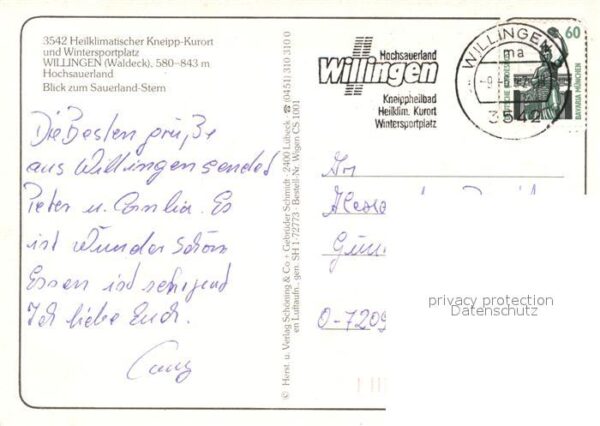 3542 Heilklimatischer Kneipp-Kurort
und Wintersportplatz
WILLINGEN (Waldeck), 580–843 m
Hochsauerland
Blick zum Sauerland-Stern
Die Besten grüße
aus Willingen sendet
Peter u. Es
ist Wunder Schön
Essen ist
Ich liebe Euch.
© Herst. u. Verlag Schöning & Co + Gebrüder Schmidt · 2400 Lübeck · ☎ (0451) 310 310 0
en Luftaufn., gen. SH 1-72773 · Bestell-Nr. Wigen CS 1001
Hochsauerland
Willingen
Kneippheilbad
Heilklim. Kurort
Wintersportplatz
WILLINGEN
ma
3542
60
BAVARIA MÜNCHEN
An
O-7209
privacy protection
Datenschutz